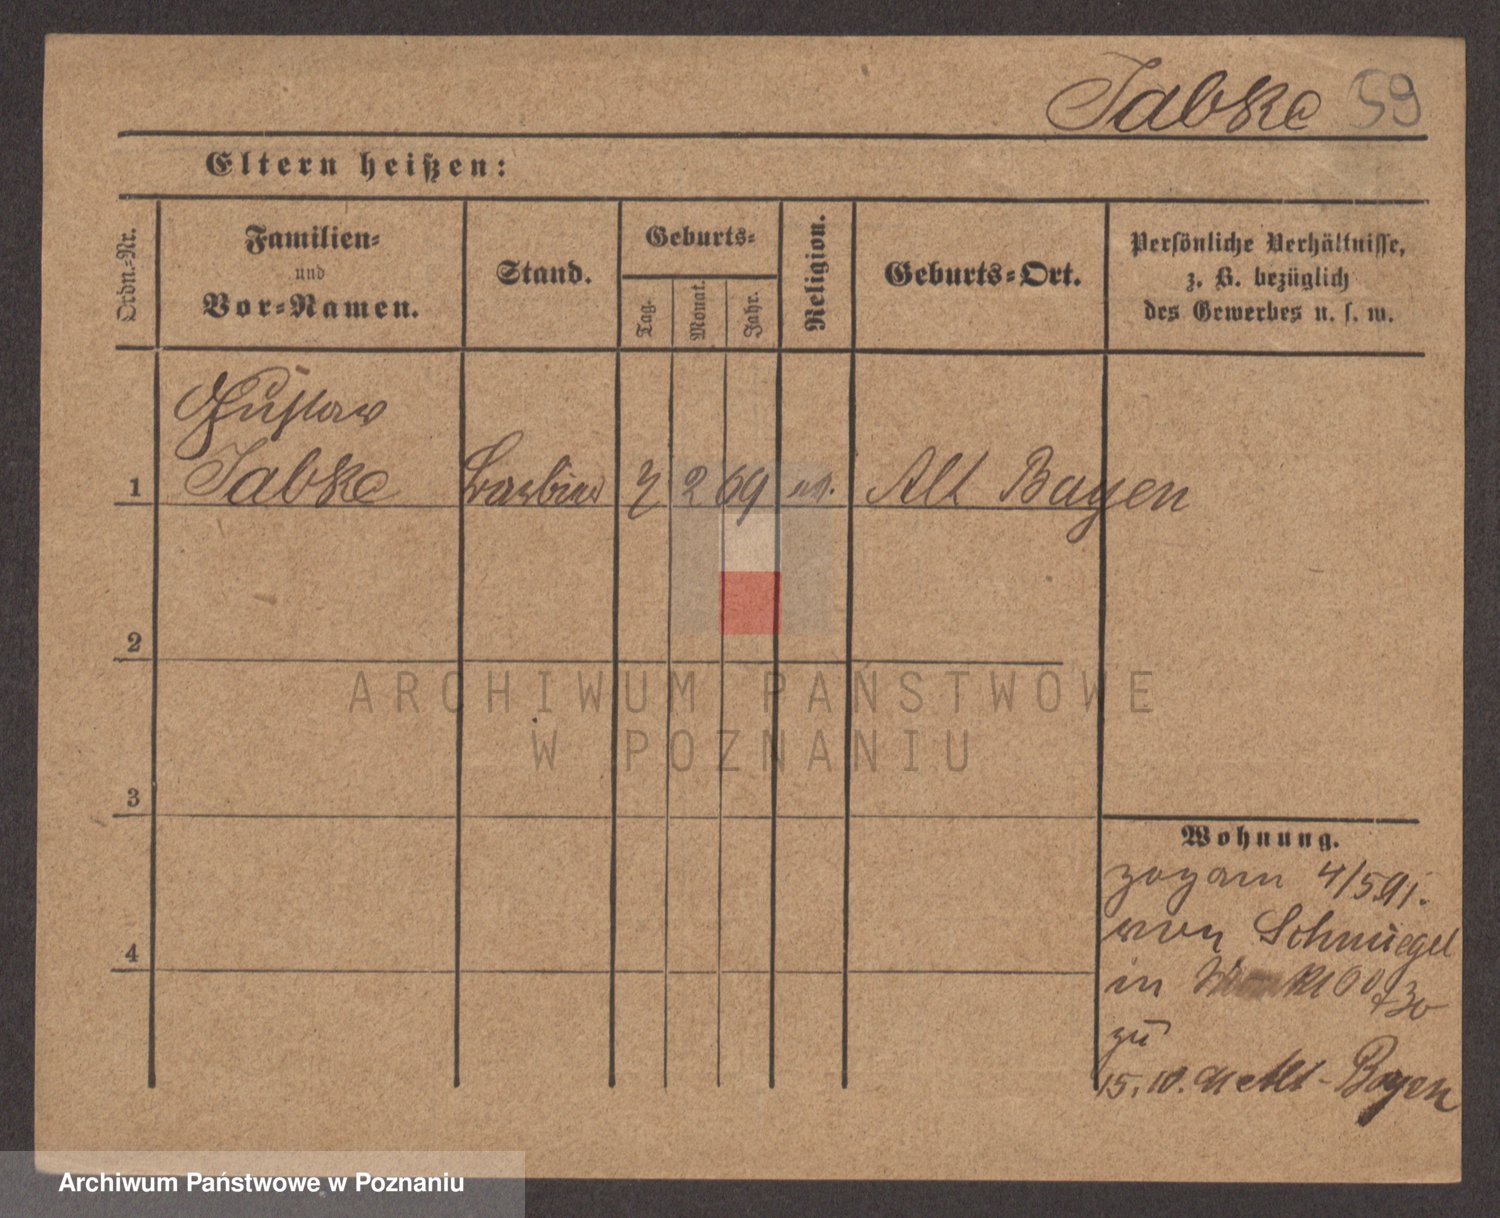 Jabke 59
Eltern heißen:
Ordn.-Nr.
Familien-
und
Vor-Namen.
Stand.
Geburts-
Tag.
Monat.
Jahr.
Religion.
Geburts-Ort.
Persönliche Verhältnisse,
z. B. bezüglich
des Gewerbes u. s. w.
Gustav
1 Jabke Barbier 7 2 69 ev. Alt Boyen
2
ARCHIWUM PAŃSTWOWE
W POZNANIU
3
Wohnung.
zog am 4/5 91.
von Schmiegel
4
in
zu
15. 10. 91 Alt-Boyen
Archiwum Państwowe w Poznaniu